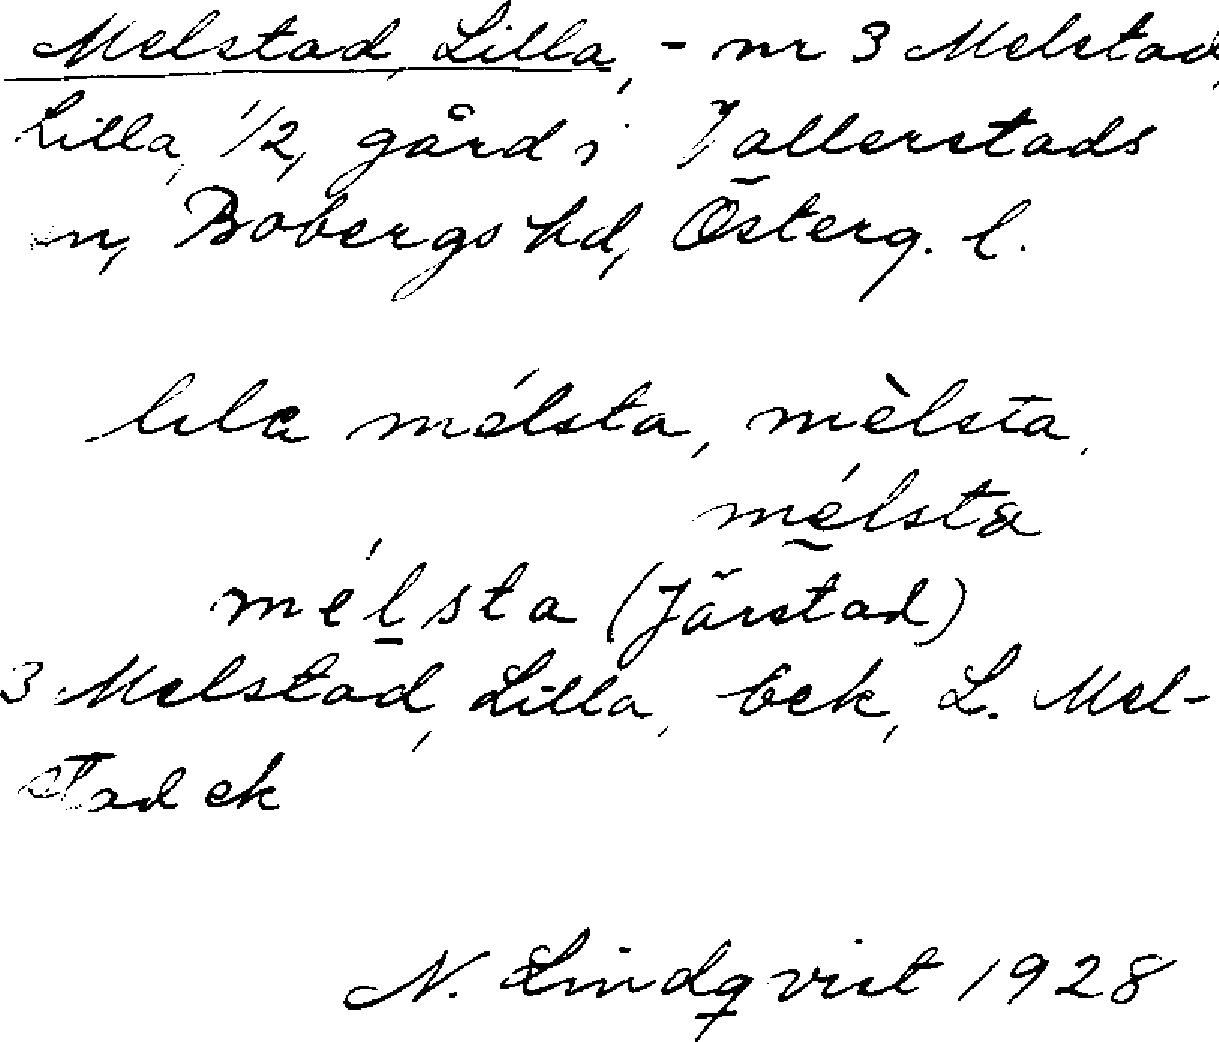 Melstad, Lilla, - nr 3 Melstad,
Lilla, 1/2, gård i Vallerstads
sn, Bobergs hd, Österg. l.
lıla mélsta, mèlsta,
mélsta
mélsta (Järstad)
3 Melstad, Lilla, bek, L. Mel-
stad ek
N. Lindqvist 1928